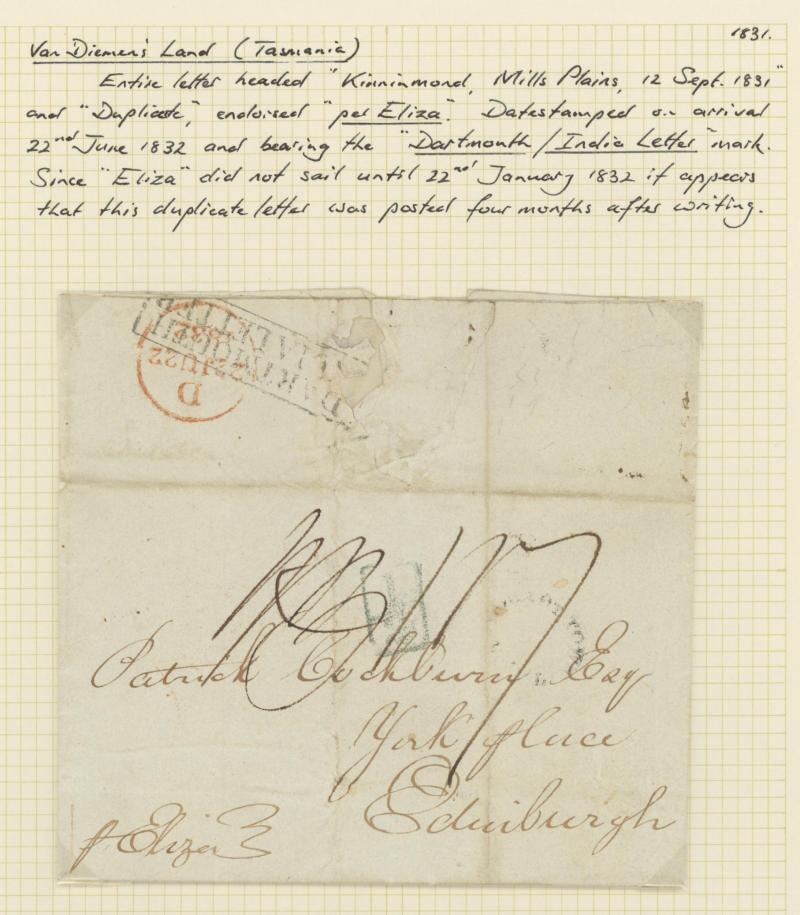 1831.
Van Diemen's Land (Tasmania)
Entire letter headed "Kinninmond, Mills Plains, 12 Sept. 1831"
and "Duplicate", endorsed "per Eliza". Datestamped on arrival
22nd June 1832 and bearing the "Dartmouth / India Letter" mark.
Since "Eliza" did not sail until 22nd January 1832 it appears
that this duplicate letter was posted four months after writing.
DARTMOUTH
INDIA LETTER
D
22 JU 22
1832
Patrick Cockburn Esq
York place
Edinburgh
p Eliza